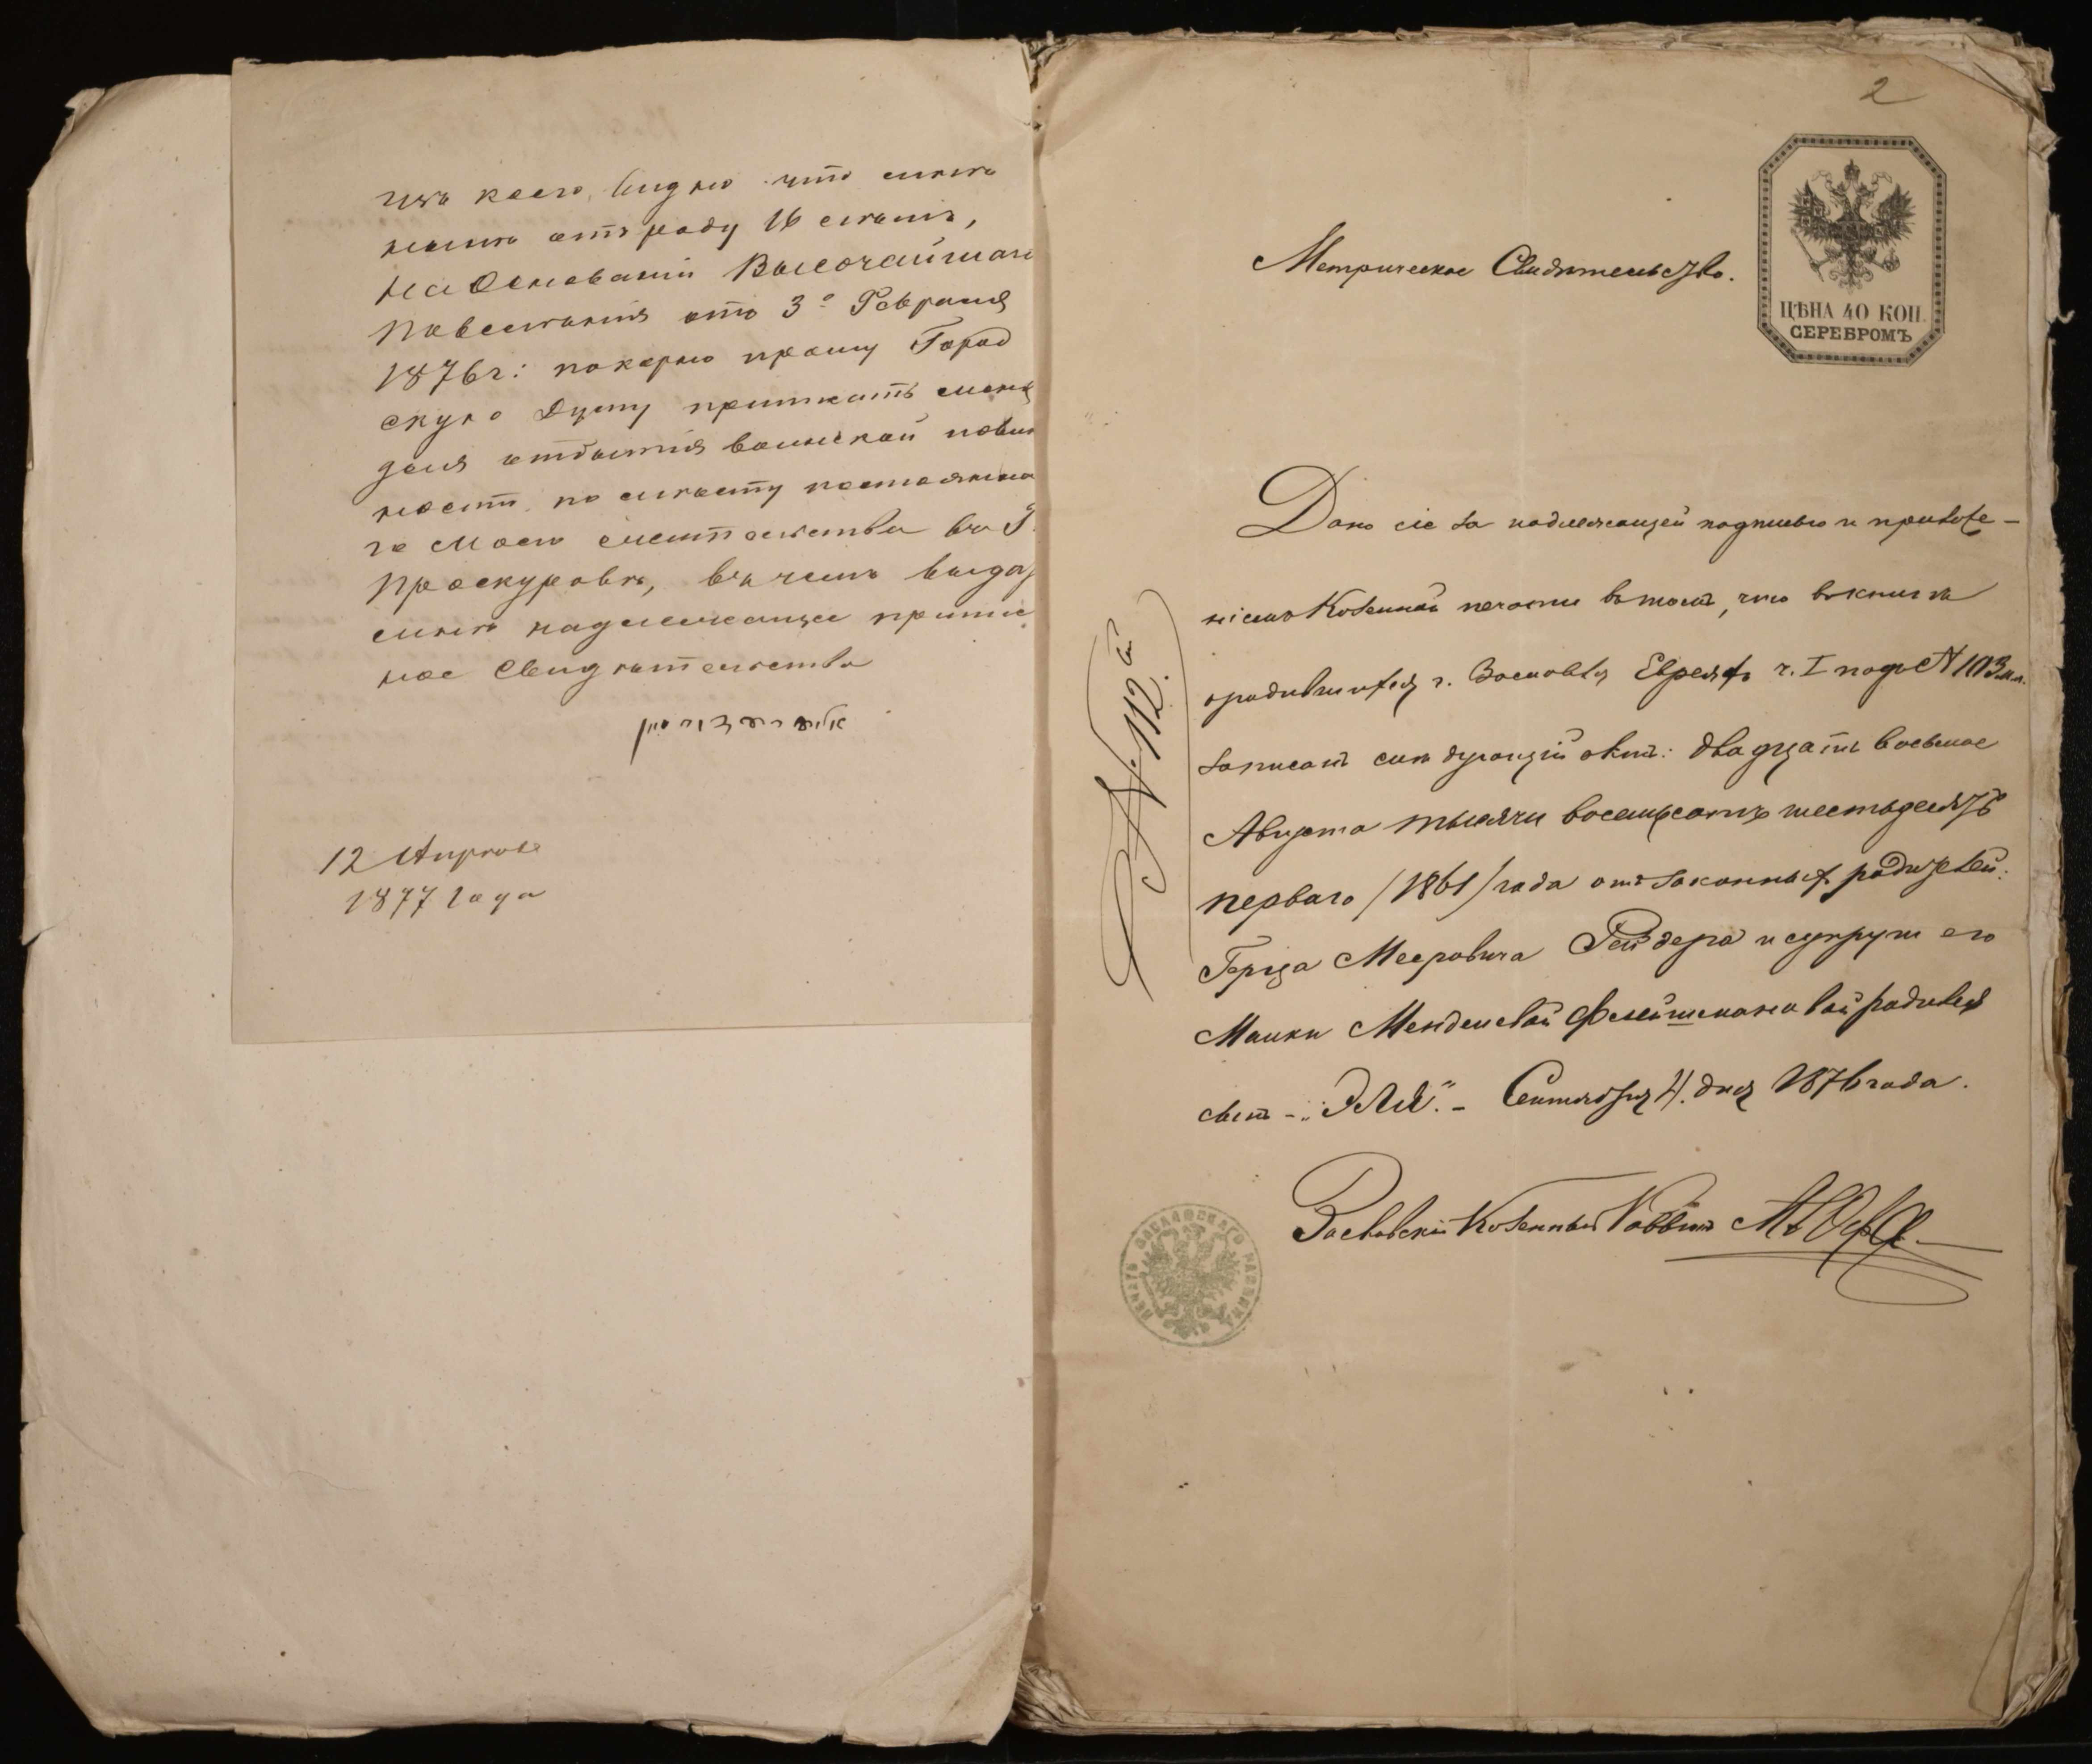 изъ коего видно что мнѣ
нынѣ отъ роду 16 лѣтъ,
на Основаніи Высочайшаго
Повелѣнія отъ 3º Февраля
1876 г: покорно прошу Город
скую Думу приписать меня
для отбытія воинской повин
ности по мѣсту постоянна
го моего жительства въ Г.
Проскуровѣ, въ чемъ выдать
мнѣ надлежащее припис
ное Свидѣтельство
12 Апрѣля
1877 Года
2
ЦѢНА 40 КОП.
СЕРЕБРОМЪ
Метрическое Свидѣтельство.
№ 112.
Дано сіе за надлежащей подписью и приложе-
ніемъ Казенной печати въ томъ, что въ книгѣ
о родившихся г. Заславля Евреяхъ ч. I подъ № 103 м.п.
записанъ слѣдующій актъ: двадцать восьмое
Августа тысячи восемьсотъ шестьдесятъ
перваго /1861/ года отъ законныхъ родителей:
Герца Мееровича Рейдера и супруги его
Малки Менделевой Флейшмановой родился
сынъ - "Эля". - Сентября 4. дня 1876 года.
Заславскій Казенный Раввинъ
ПЕЧАТЬ ЗАСЛАВСКАГО РАВВИНА